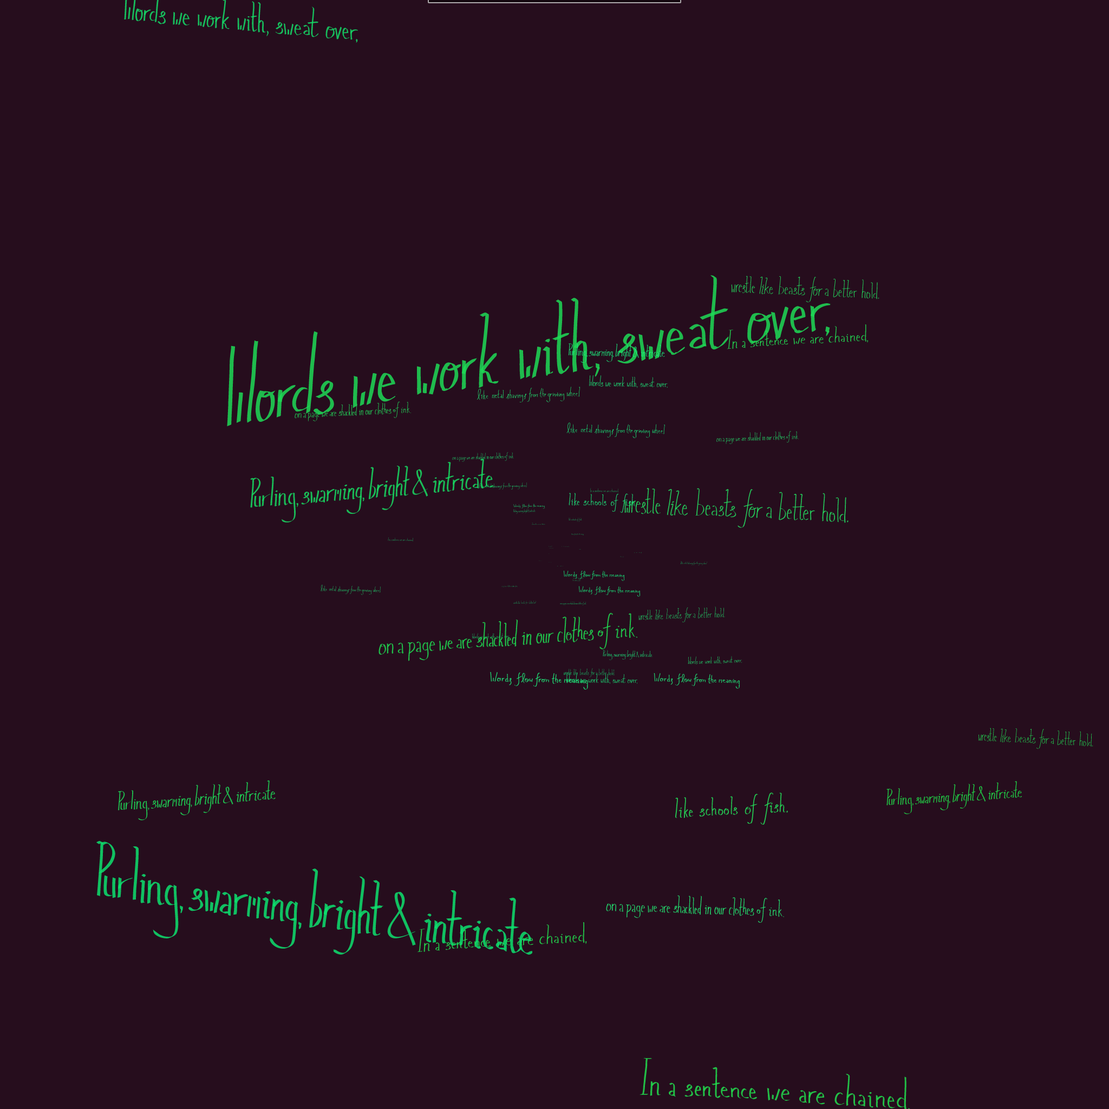 Words we work with, sweat over,
wrestle like beasts for a better hold.
Words we work with, sweat over,
In a sentence we are chained,
Purling, swarming, bright & intricate
Words we work with, sweat over,
like metal shavings from the growing wheel
on a page we are shackled in our clothes of ink.
like metal shavings from the growing wheel
on a page we are shackled in our clothes of ink.
on a page we are shackled in our clothes of ink.
Purling, swarming, bright & intricate
like schools of fish.
wrestle like beasts for a better hold.
Words flow from the meaning
Words flow from the meaning
Words flow from the meaning
like metal shavings from the growing wheel
wrestle like beasts for a better hold.
on a page we are shackled in our clothes of ink.
Purling, swarming, bright & intricate
Words we work with, sweat over,
Words flow from the meaning
work with, sweat over,
Words flow from the meaning
wrestle like beasts for a better hold.
Purling, swarming, bright & intricate
Purling, swarming, bright & intricate
like schools of fish.
Purling, swarming, bright & intricate
on a page we are shackled in our clothes of ink.
In a sentence we are chained,
In a sentence we are chained